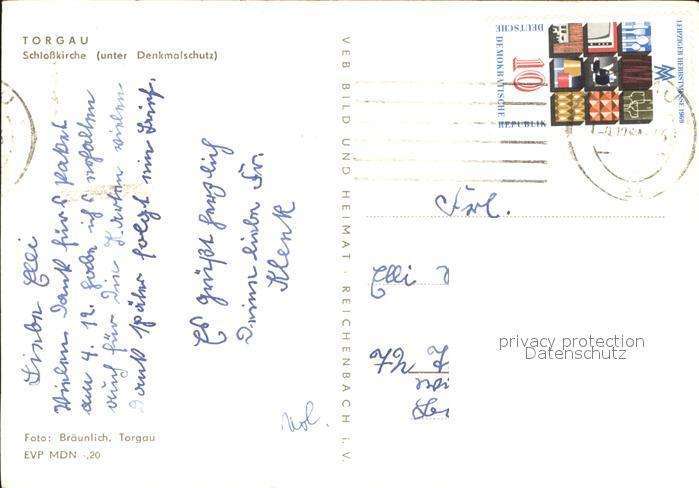 TORGAU
Schloßkirche (unter Denkmalschutz)
Liebe Elli
Vielen Dank fürs Paket
am 4. 12. habe ichs erhalten
auch für die Karten vielen
Dank später folgt ein Brief.
Es grüßt herzlich
Deine liebe Fr.
Klenk
Foto: Bräunlich, Torgau
EVP MDN -,20
VEB BILD UND HEIMAT · REICHENBACH i. V.
DEUTSCHE
DEMOKRATISCHE
REPUBLIK
10
LEIPZIGER HERBSTMESSE 1969
Frl.
Elli
privacy protection
Datenschutz